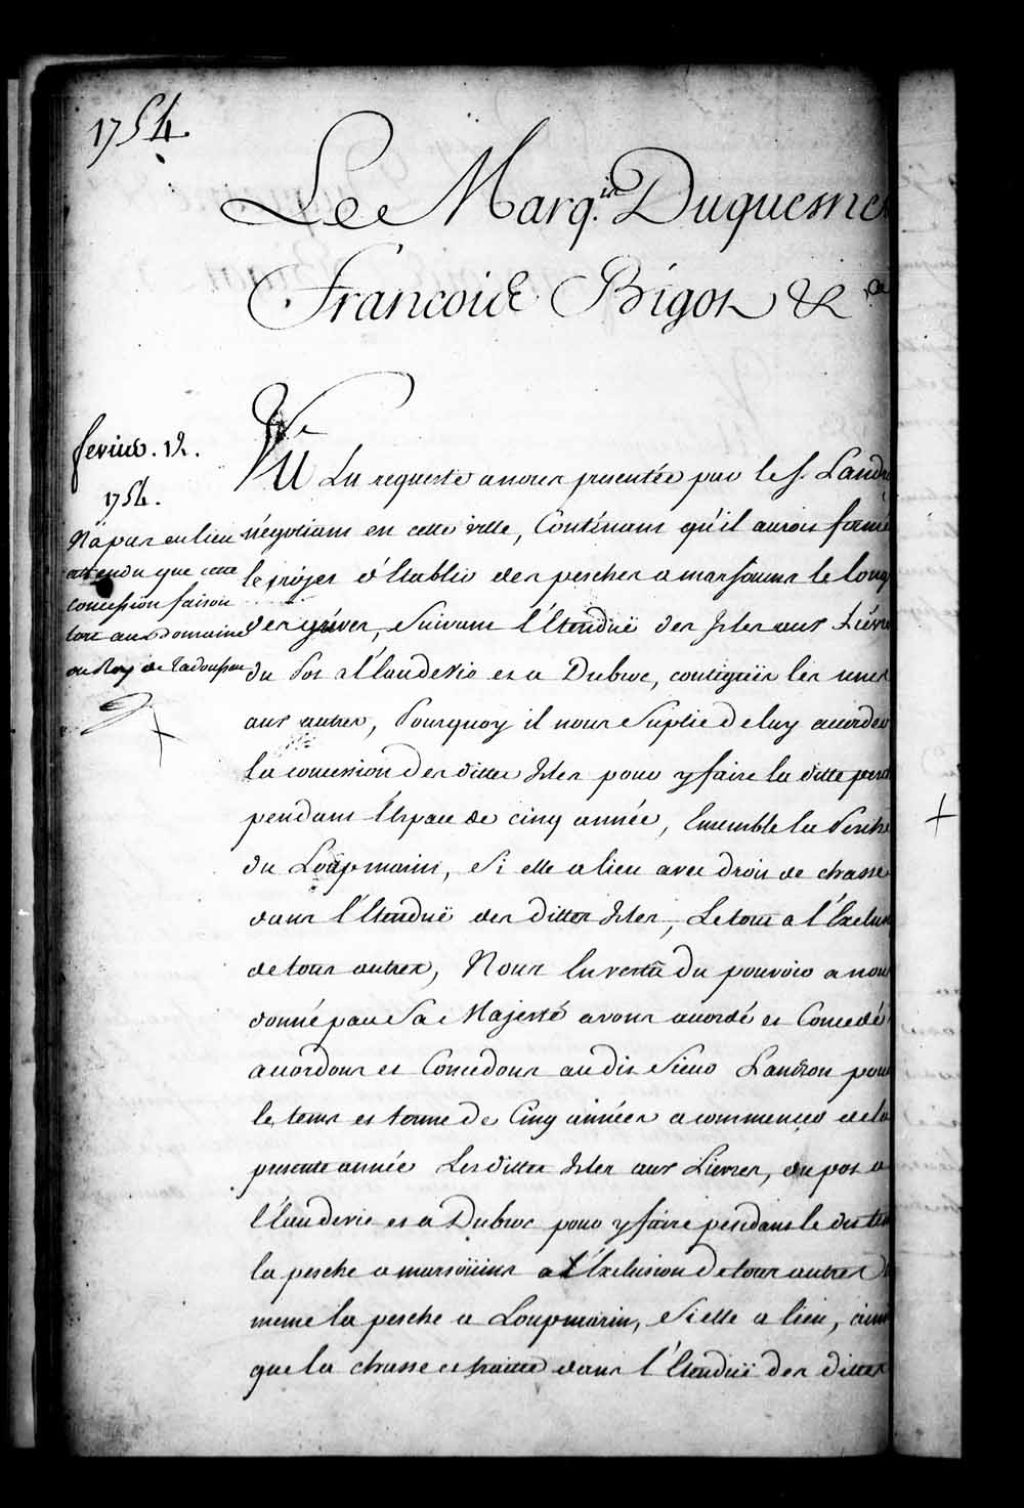 1754.
Le Marq.is Duquesne
Francois Bigot &ca
fevrier. 12.
1754.
N'a pas eu lieu
attendu que cette
concession faisoit
tort au Domaine
du Roy de Tadoussac
Vû La requeste a nous presentée par le S. Landr
négotiant en cette ville, Contenant qu'il auroit formé
le projet d'établir des pesches a marsouins le long
des gréves, Suivant l'Etenduë des Isles aux Liévre
du Pot a l'Laudevie et a Dubroc, contiguës les unes
aux autres, Pourquoy il nous Suplie de luy accorder
la concession des dittes Isles pour y faire la ditte pes
pendant l'Espace de cinq année, Ensemble la Pesche
du Loupmarin, Si elle a lieu avec droit de chasse
dans l'Etenduë des dittes Isles, Le tout a l'Exclus
de tous autres, Nous En vertu du pouvoir a nous
donné par Sa Majesté avons acordé et Concedé
acordons et Concedons au dit Sieur Landron pour
le tems et terme de Cinq années a commencer de la
presente année Les dittes Isles aux Lievres, du pot a
l'Eaudevie et a Dubroc pour y faire pendant le dit te
la pesche a marsoüins a l'Exclusion de tous autres
meme la pesche a Loupmarin, Si elle a lieu, ainsi
que la chasse et traitte dans l'Etenduë des dittes